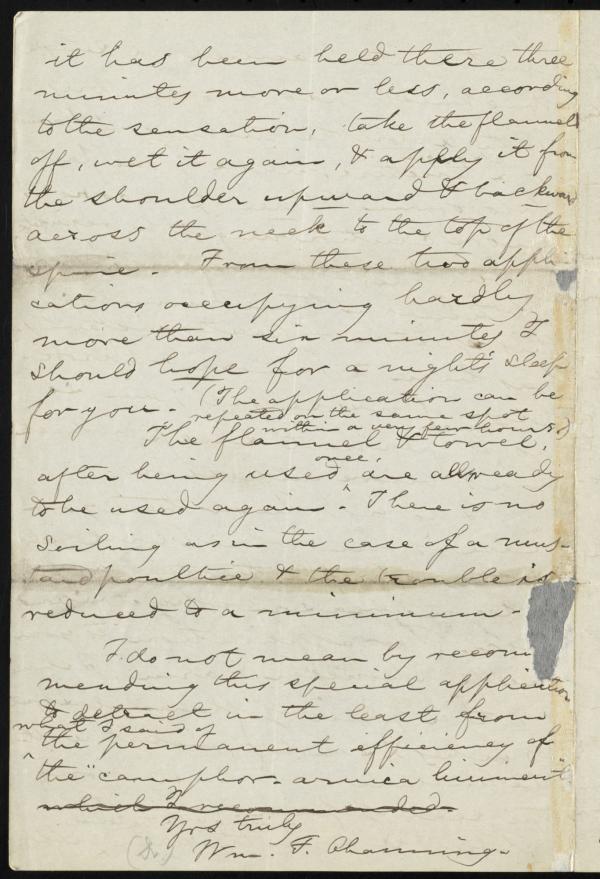 it has been held there three
minutes more or less, according
to the sensation, take the flannel
off, wet it again, & apply it from
the shoulder upward & backward
across the neck to the top of the
spine. From these two appli-
cations occupying hardly
more than six minutes I
should hope for a night's sleep
for you. (The application can be
repeated on the same spot
within a very few hours.)
The flannel & towel,
after being used once, are all ready
to be used again. There is no
soiling as in the case of a mus-
tard poultice & the trouble is
reduced to a minimum.
I do not mean by recom
mending this special application
to detract in the least from
what I said of
the permanent efficiency of
the "camphor-arnica liniment"
which I recommended.
Yrs truly
Wm. F. Channing.
(S.)